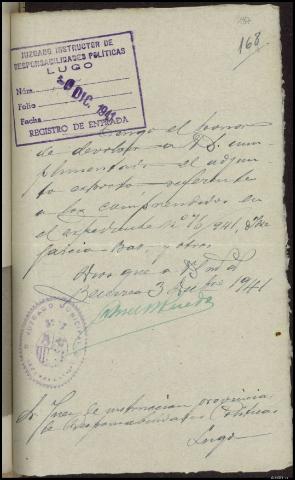 168
JUZGADO INSTRUCTOR DE
RESPONSABILIDADES POLÍTICAS
LUGO
Núm.
Folio
Fecha
DIC. 1941
REGISTRO DE ENTRADA
Tengo el honor
de devolver a VS. cum-
plimentado el adjun-
to exhorto referente
a los comprendidos en
el expediente nº 76/941,
García Bao, y otros.
Dios gue a VS m. a.
Becerrea 3 Dicbre 1941
JUZGADO
Sr. Juez de instruccion provincial
de Responsabilidades Politicas
Lugo